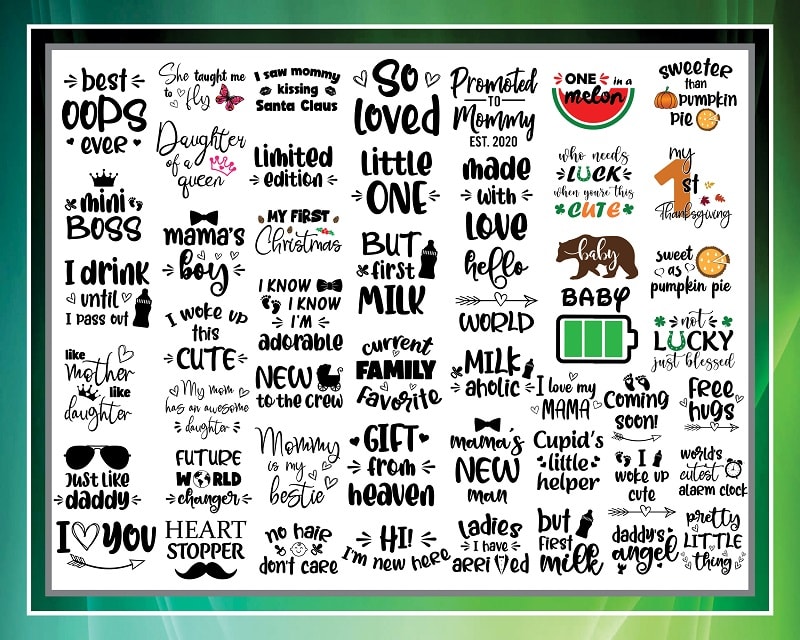 best
OOPS
ever
mini
BOSS
I drink
until
I pass out
like
Mother
like
daughter
Just like
daddy
I YOU
She taught me
to fly
Daughter
of a
queen
mama's
boy
I woke up
this
CUTE
My mom
has an awesome
daughter
FUTURE
WORLD
changer
HEART
STOPPER
I saw mommy
kissing
Santa Claus
Limited
edition
MY FIRST
Christmas
I KNOW
I KNOW
I'M
adorable
NEW
to the crew
Mommy
is my
bestie
no hair
don't care
So
loved
little
ONE
BUT
first
MILK
current
FAMILY
Favorite
GIFT
from
heaven
HI!
I'm new here
Promoted
TO
Mommy
EST. 2020
made
with
love
hello
WORLD
MILK
aholic
mama's
NEW
man
Ladies
I have
arrived
ONE in a
melon
who needs
LUCK
when you're this
CUTE
baby
BABY
I love my
MAMA
Cupid's
little
helper
but
first
milk
sweeter
than
pumpkin
pie
my
1st
Thanksgiving
sweet
as
pumpkin pie
not
LUCKY
just blessed
Coming
soon!
I
woke up
cute
daddy's
angel
FREE
hugs
world's
cutest
alarm clock
pretty
LITTLE
thing